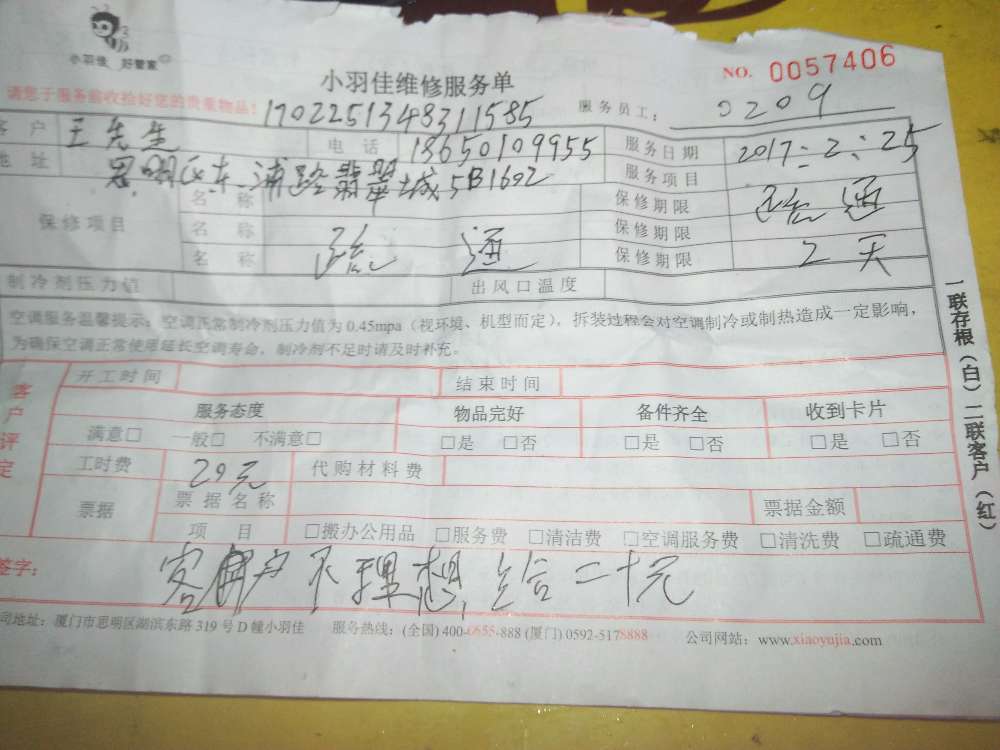 小羽佳 好管家
小羽佳维修服务单
NO. 0057406
请您于服务前收捡好您的贵重物品!
1702251348311585
服务员工: 0209
客户 王先生 电话 18650109955 服务日期 2017:2:25
地址 思明区东浦路翡翠城5B1602 服务项目 疏通
保修项目
名称 保修期限
名称 保修期限
名称 疏通 保修期限 2天
制冷剂压力值 出风口温度
空调服务温馨提示:空调正常制冷剂压力值为0.45mpa(视环境、机型而定),拆装过程会对空调制冷或制热造成一定影响,
为确保空调正常使用延长空调寿命,制冷剂不足时请及时补充。
客户评定
开工时间 结束时间
服务态度 物品完好 备件齐全 收到卡片
满意□ 一般□ 不满意□ □是 □否 □是 □否 □是 □否
工时费 20元 代购材料费
票据 票据名称 票据金额
项目 □搬办公用品 □服务费 □清洁费 □空调服务费 □清洗费 □疏通费
签字: 客户不理想,给二十元
司地址:厦门市思明区湖滨东路319号D幢小羽佳 服务热线:(全国)400-0555-888 (厦门)0592-5178888 公司网站:www.xiaoyujia.com
一联存根(白)二联客户(红)